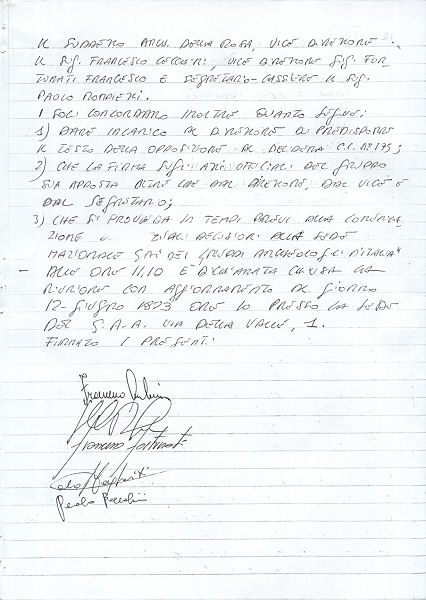 IL SUDDETTO ARCH. DELLA ROSA, VICE DIRETTORE
IL SIG. FRANCESCO, VICE DIRETTORE SIG. FOR-
TUNATI FRANCESCO E SEGRETARIO-CASSIERE IL SIG.
PAOLO
I SOCI CONCORDANO INOLTRE QUANTO SEGUE:
1) DARE INCARICO AL DIRETTORE DI PREDISPORRE
IL TESTO DELLA OPPOSIZIONE AL DELIBERA C.C. N° 175;
2) CHE LA FIRMA SUGLI ATTI UFFICIALI DEL GRUPPO
SIA APPOSTA OLTRE CHE DAL DIRETTORE, DAL VICE E
DAL SEGRETARIO;
3) CHE SI PROVVEDA IN TEMPI BREVI ALLA COMUNICA
ZIONE DECISIONI ALLA SEDE
NAZIONALE DEI GRUPPI ARCHEOLOGICI D'ITALIA"
ALLE ORE 11,10 È DICHIARATA CHIUSA LA
RIUNIONE CON AGGIORNAMENTO AL GIORNO
12 GIUGNO ORE 10 PRESSO LA SEDE
DEL G.A.A. VIA DELLA VALLE, 1.
FIRMATO I PRESENTI:
Francesco
Francesco Fortunati
Paolo